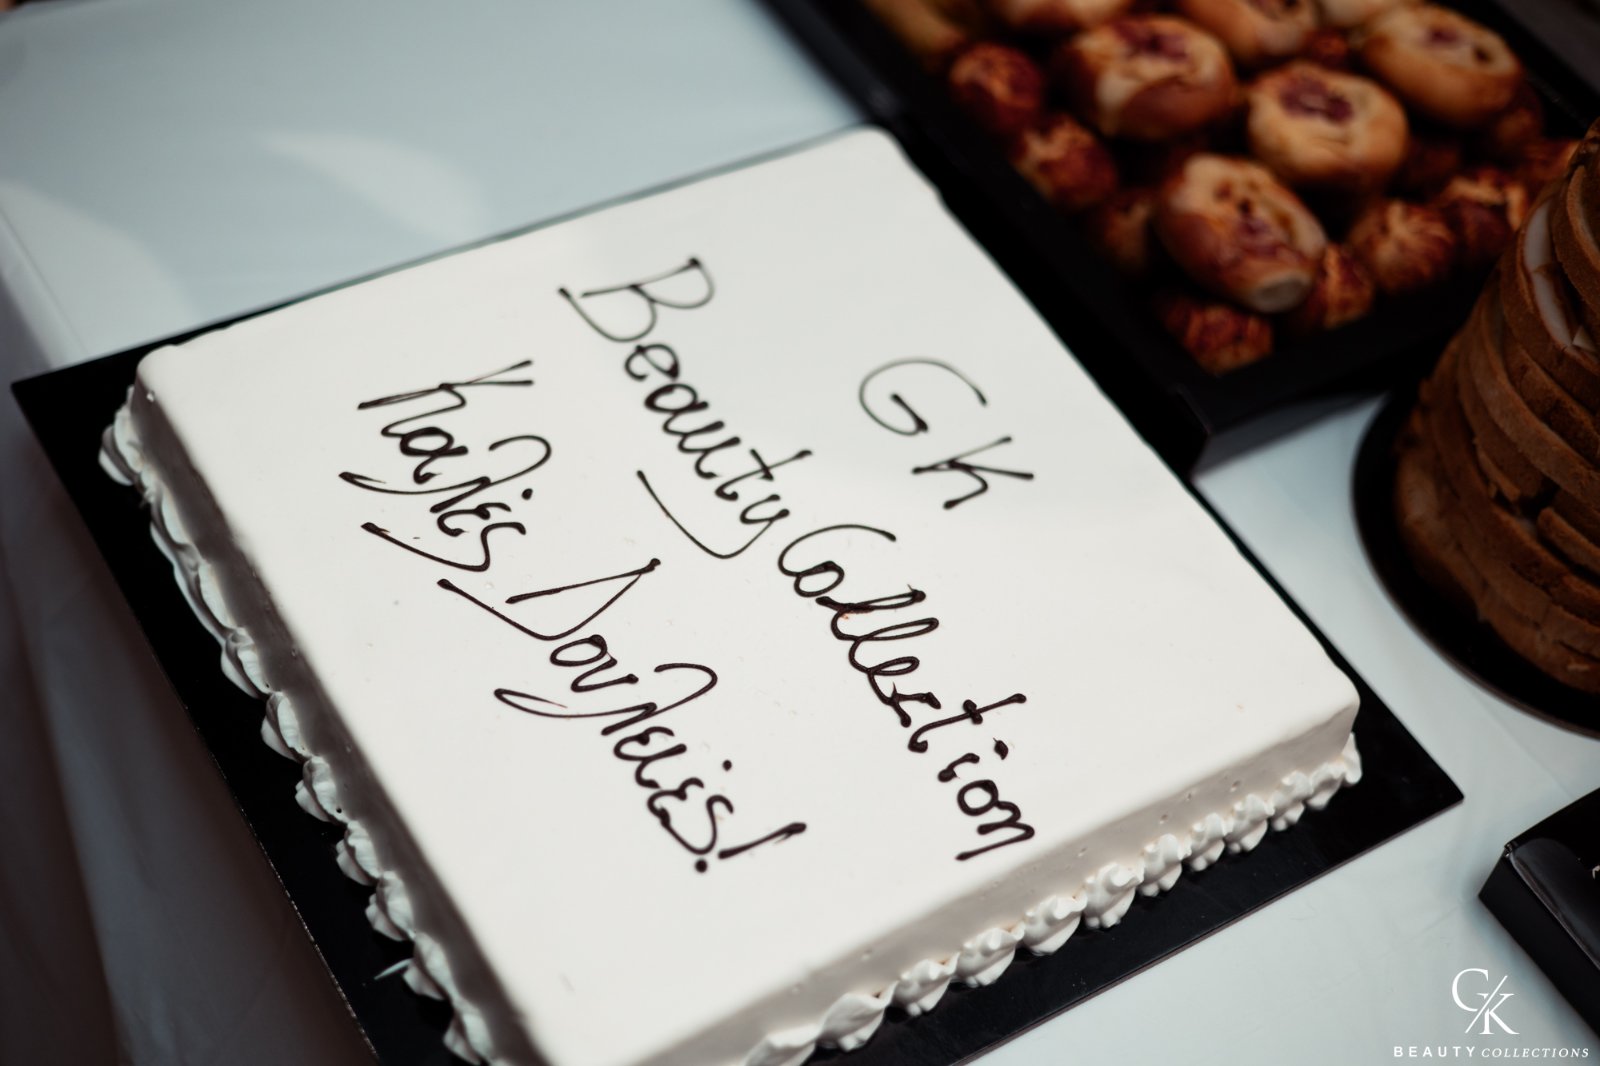 GK
Beauty Collection
Καλές Δουλειές!
GK
BEAUTY COLLECTIONS